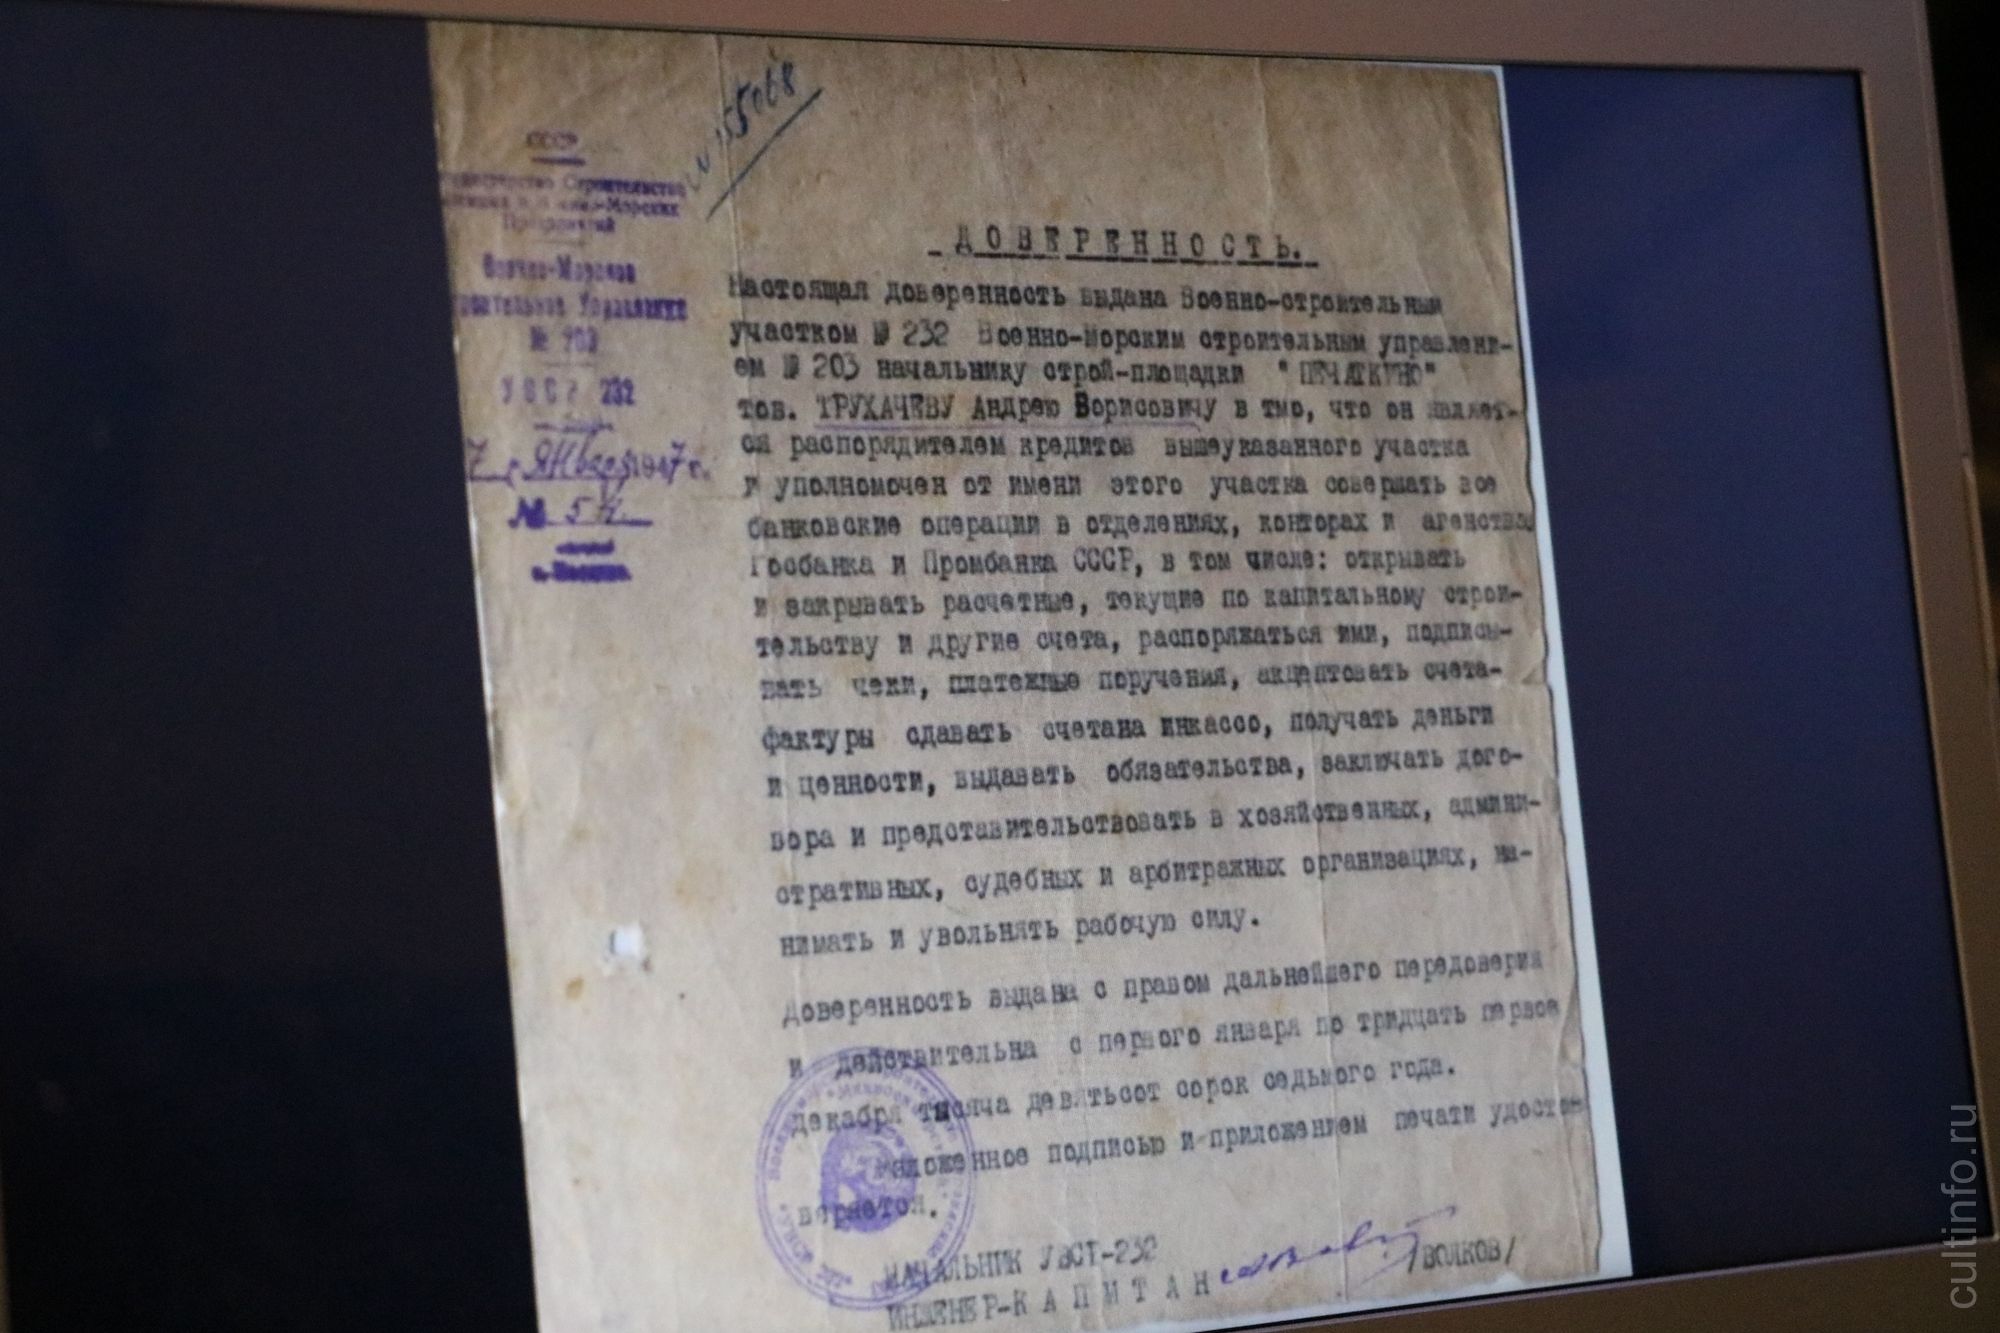 55068
СССР
Строительства
Военно-Морских
Предприятий
Военно-Морское
Строительное Управление
№ 203
УВСТ 232
7 " Января 1947 г.
№ 54
г. Москва.
ДОВЕРЕННОСТЬ.
Настоящая доверенность выдана Военно-строительным
участком № 232 Военно-Морским строительным управлени-
ем № 203 начальнику строй-площадки "ПЕЧАТКИНО"
тов. ТРУХАЧЕВУ Андрею Борисовичу в тмо, что он являет-
ся распорядителем кредитов вышеуказанного участка
и уполномочен от имени этого участка совершать все
банковские операции в отделениях, конторах и агенствах
Госбанка и Промбанка СССР, в том числе: открывать
и закрывать расчетные, текущие по капитальному строи-
тельству и другие счета, распоряжаться ими, подписы-
вать чеки, платежные поручения, акцептовать счета-
фактуры сдавать счетана инкассо, получать деньги
и ценности, выдавать обязательства, заключать дого-
вора и представительствовать в хозяйственных, админи-
стративных, судебных и арбитражных организациях, на-
нимать и увольнять рабочую силу.
Доверенность выдана с правом дальнейшего передоверия
и действительна с первого января по тридцать первое
декабря тысяча девятьсот сорок седьмого года.
Изложенное подписью и приложением печати удосто-
веряетоя.
НАЧАЛЬНИК УВСТ-232
ИНЖЕНЕР-КАПИТАН /ВОЛКОВ/
cultinfo.ru